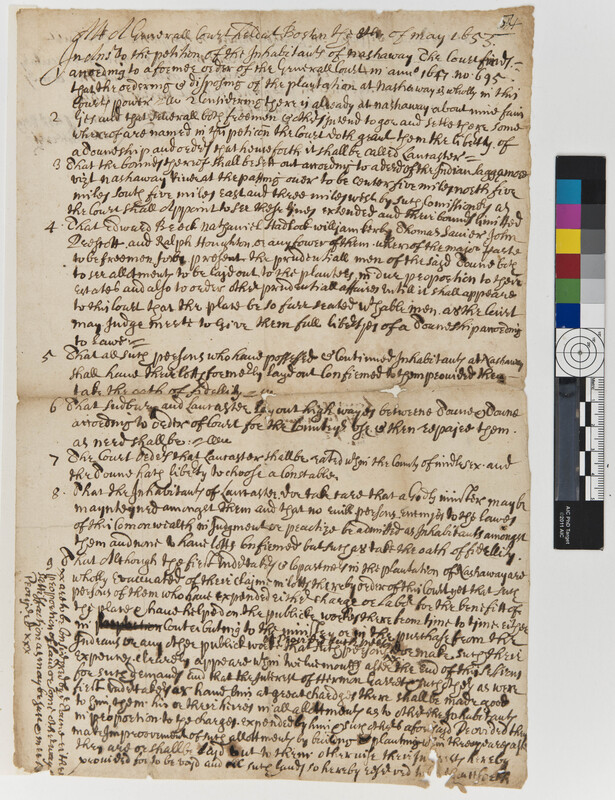 Att A Generall Court held at Boston the of may 1653
In Ans to the petition of the Inhabitants of nashaway The Court finds
according to a former order of the Generall Court in anno 1647 no: 6:95
that the ordering & disposing of the plantation at Nashaway is wholly in this
Courts power
Considering there is already at nashaway about nine fam
2 lies and that severall both freemen & others intend to goe and setle there some
whereof are named in this petition the Court doth graunt them the libertie of
a Touneship and order that henceforth it shall be called Lancaster
3 That the bounds therof shall be sett out according to a deed of the Indian Saggamore
viz nashaway River at the passing over to be Center five miles north five
miles South five miles East and three miles west by such Comissioners as
the Court shall Appoint to see these lines extended and their bounds limitted
4 That Edward Breck nathaniell Hadlock william kerby Thomas Sawier John
Prescott and Ralph Houghton or any fower of them wherof the major parte
to be freemen for present the prudentiall men of the sayd Toune both
to see allotments to be layd out to the planters in due proportion to their
estates and also to order other prudentiall affaires untill it shall appeare
to this Court that the place be so farr seated with able men as the Court
may Judge meete to Give them full liberties of a Touneship according
to Lawe
5 That all such persons who have possessed & Continued Inhabitants at Nashaway
shall have their lotts formerly layd out confirmed to them provided they
take the oath of fidellity
6 That Sudbury and Lancaster lay out high wayes betweene Toune & Toune
according to order of Court for the Countries use & then repaire them
as need shall be:
7 The Court Orders that Lancaster shall be rated within the County of midlesex and
the Toune hath liberty to choose a Constable
8 That the Inhabitants of Lancaster doe take care that a Godly minister may be
maynteyned amongst them and that no evill persons Enemies to the lawes
of this Comonwealth in Judgment or practize be admitted as Inhabitants amongst
them and none to have lotts confirmed but such as take the oath of fidellity
That Although the first undertakers & copartners in the plantation of Nashaway are
wholly evacuated of their claime in lotts there by order of this Court yet that such
persons of them who have expended either charge or labor for the benefitt of
the place & have helped on the publicke workes there from time to time either
in Contributing to the minister or in the purchase from the
Indians or any other publick worke that such persons make such their
expences clearely appeare within twelve months after the end of this Sessions
for such demands and that the Interest of Harmon Garrett & such others as were
first undertakers as have bin at great chardges there shall be made good
to him, them his or their heires in all allotments as to other the Inhabitants
in proportion to the charges expended by him & such others aforesaid Provided they
make Improovement of such allotments by building & planting within three yeares after
they are or shall be layd out to them: otherwise their Interest is hereby
provided for to be void and all such lands so hereby reserved to
to be considered by the Toune either
in proportion of land or some other way
satisfaction as may be just & meete
Provided